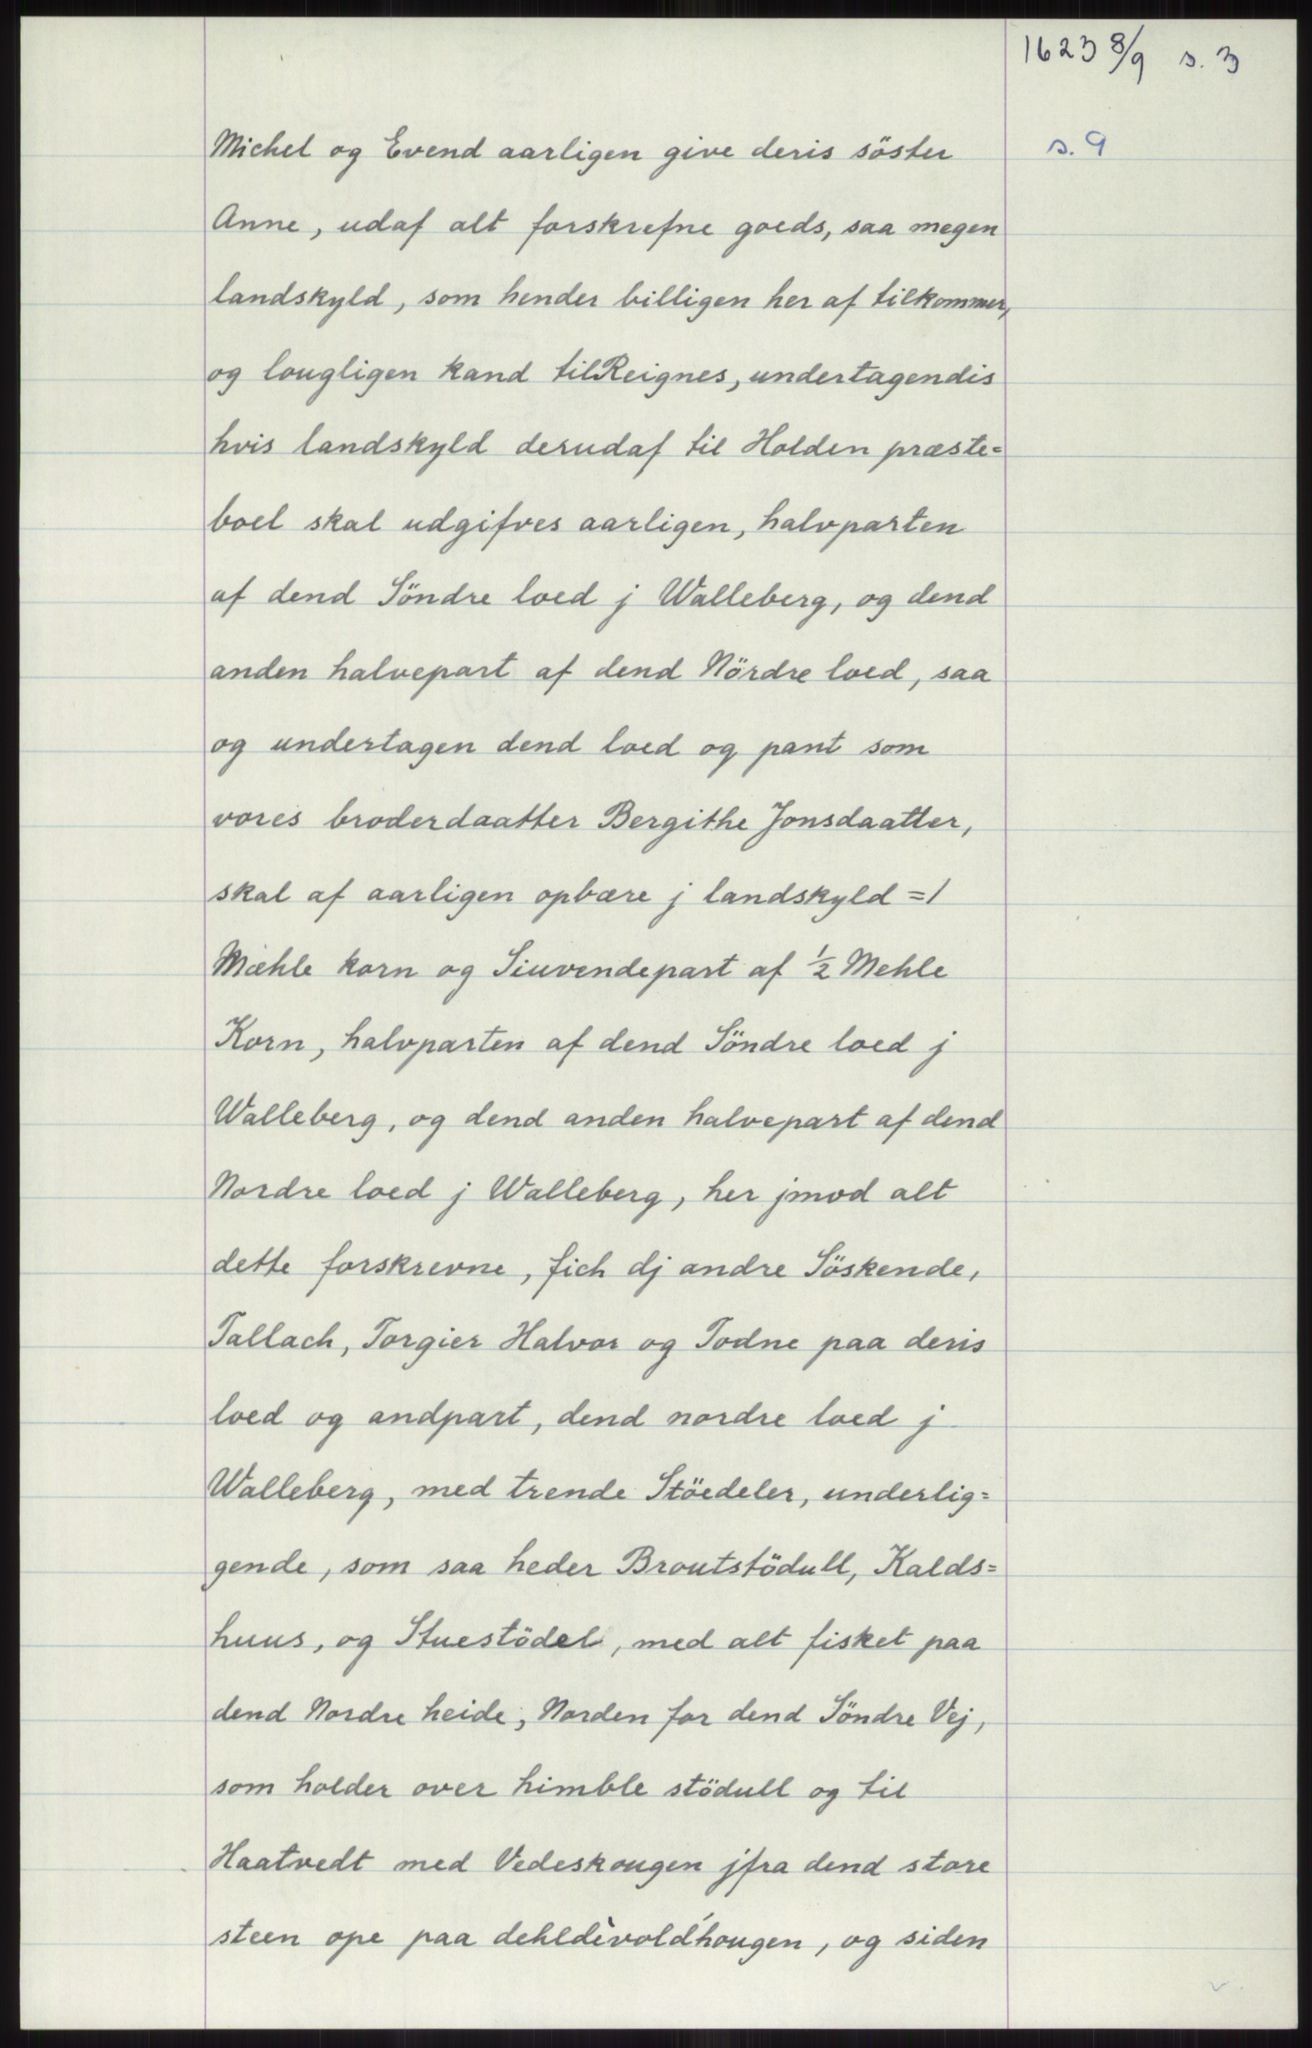 1623 8/9 s. 3
s. 9
Michel og Evend aarligen give deris söster
Anne, udaf alt forskrefne goeds, saa megen
landskyld, som hender billigen her af tilkommer,
og lougligen kand tilReignes, undertagendis
hvis landskyld derudaf til Holden præste=
boel skal udgifves aarligen, halvparten
af dend Söndre loed j Walleberg, og dend
anden halvepart af dend Nördre loed, saa
og undertagen dend loed og pant som
vores broderdaatter Bergithe Jonsdaatter,
skal af aarligen opbære j landskyld = 1
Mæhle korn og Siuvendepart af ½ Mehle
Korn, halvparten af dend Söndre loed j
Walleberg, og dend anden halvepart af dend
Nordre loed j Walleberg, her jmod alt
dette forskrevne, fich dj andre Söskende,
Tallach, Torgier Halvor og Todne paa deris
loed og andpart, dend nordre loed j
Walleberg, med trende Stöedeler, underlig=
gende, som saa heder Broutstödull, Kalds=
huus, og Stuestödel, med alt fisket paa
dend Nordre heide, Norden for dend Söndre Vej,
som holder over himble stödull og til
Haatvedt med Vedeskougen jfra dend store
steen ope paa dehldèvoldhougen, og siden